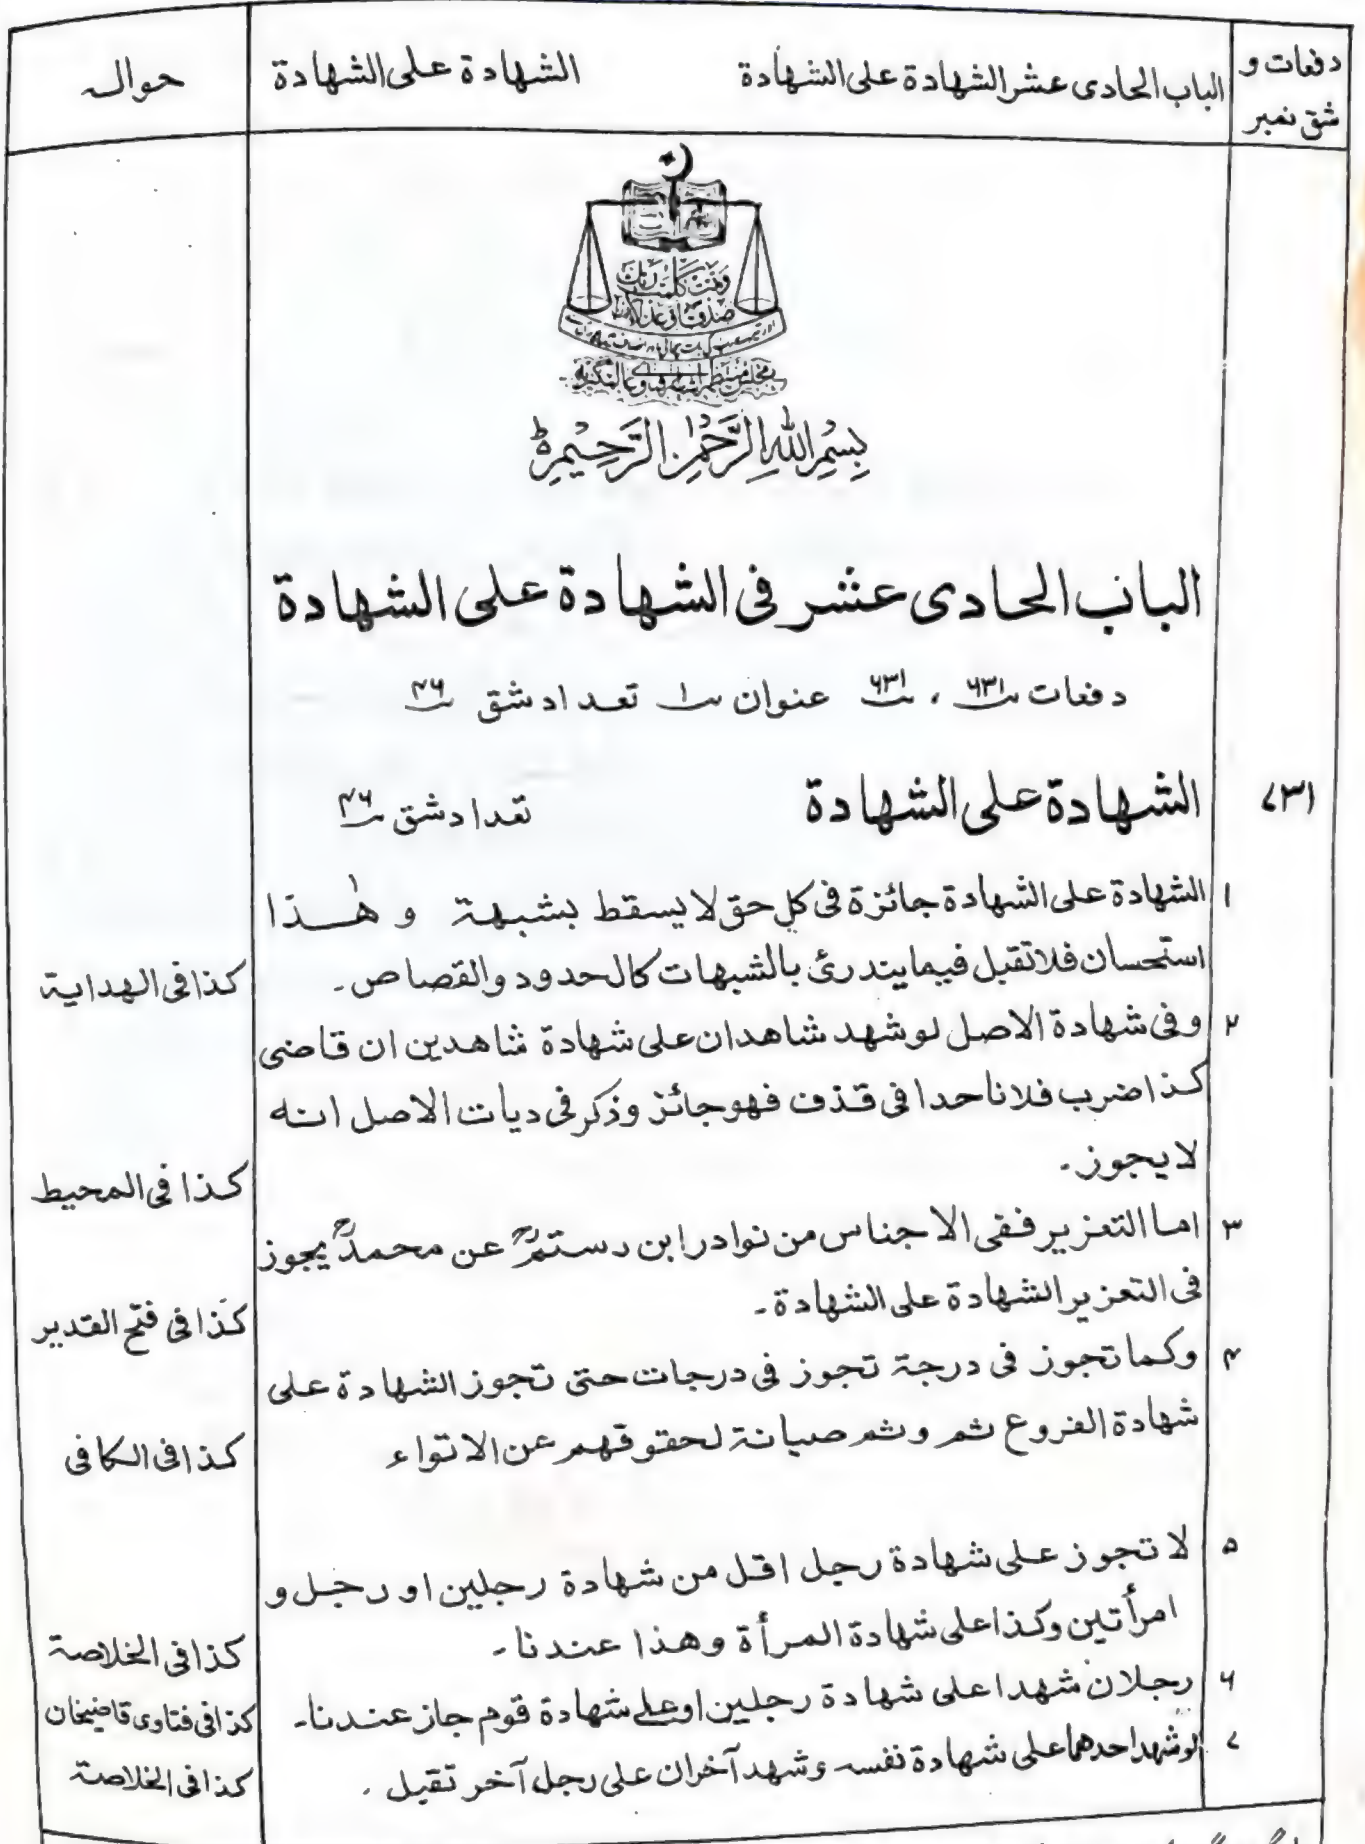 دفعات و
شق نمبر
الباب الحادی عشر الشهادة علی الشهادة
الشهادة علی الشهادة
حوالہ
وتمت کلمت ربک
صدقا وعدلا
بِسْمِ اللهِ الرَّحْمٰنِ الرَّحِيْمِ ط
الباب الحادی عشر فی الشهادة علی الشهادة
دفعات ۷۳۱ ، ۷۳۱ عنوان ۱ تعداد شق ۴۶
۷۳۱ الشهادة علی الشهادة تعداد شق ۴۶
۱ الشهادة علی الشهادة جائزة فی کل حق لا یسقط بشبهة و هٰذا
استحسان فلا تقبل فیما یندرئ بالشبهات کالحدود والقصاص۔ کذا فی الهدایة
۲ وفی شهادة الاصل لو شهد شاهدان علی شهادة شاهدین ان قاضی
کذا ضرب فلانا حدا فی قذف فهو جائز وذکر فی دیات الاصل انه
لا یجوز۔ کذا فی المحیط
۳ اما التعزیر ففی الاجناس من نوادر ابن رستمؒ عن محمدؒ یجوز
فی التعزیر الشهادة علی الشهادة۔ کذا فی فتح القدیر
۴ وکما تجوز فی درجة تجوز فی درجات حتی تجوز الشهادة علی
شهادة الفروع ثم وثم صیانة لحقوقهم عن الاتواء کذا فی الکافی
۵ لا تجوز علی شهادة رجل اقل من شهادة رجلین او رجل و
امرأتین وکذا علی شهادة المرأة وهذا عندنا۔ کذا فی الخلاصة
۶ رجلان شهدا علی شهادة رجلین او علی شهادة قوم جاز عندنا۔ کذا فی فتاوی قاضیخان
۷ لو شهد احدهما علی شهادة نفسه وشهد آخران علی رجل آخر تقبل ۔ کذا فی الخلاصة